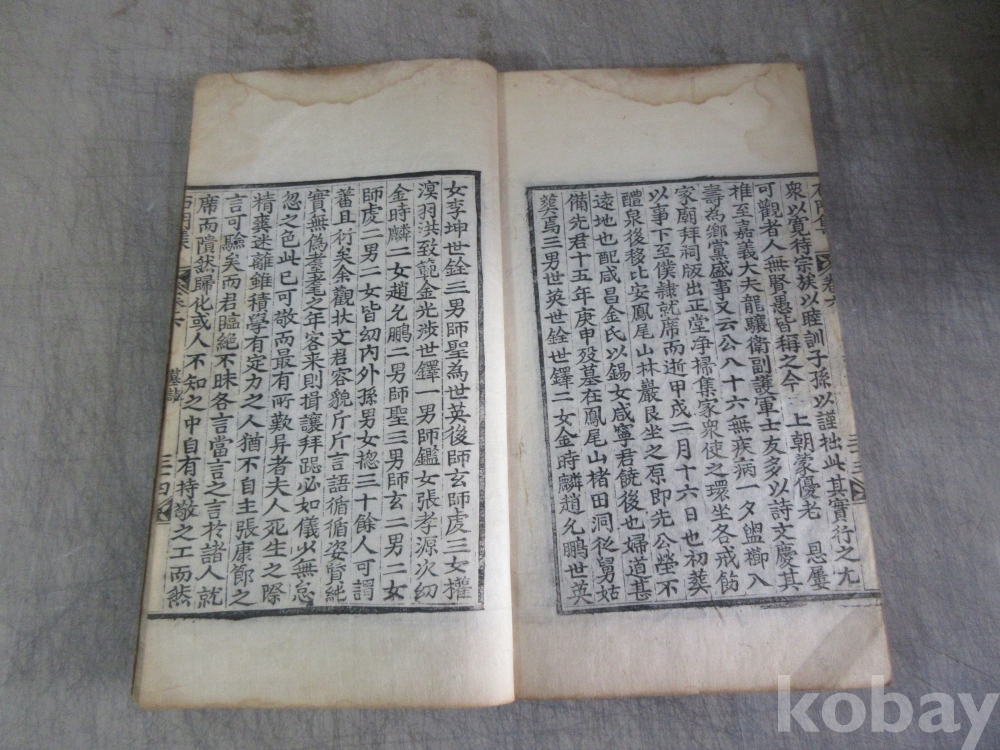 卷六
衆以寬待宗族以睦訓子孫以謹拙此其實行之尤
可觀者人無賢愚皆稱之今 上朝蒙優老 恩屢
推至嘉義大夫龍驤衛副護軍士友多以詩文慶其
壽為鄉黨盛事又云公八十六無疾病一夕盥櫛入
家廟拜祠版出正堂净掃集家衆使之環坐各戒飭
以事下至僕隷就席而逝甲戌二月十六日也初葬
醴泉後移比安鳳尾山林巖艮坐之原即先公塋不
遠地也配咸昌金氏以錫女咸寧君饒後也婦道甚
備先君十五年庚申歿墓在鳳尾山楮田洞從舅姑
葬焉三男世英世銓世鐸二女金時麟趙允鵬世英
三十三
女李坤世銓三男師聖為世英後師玄師虔三女權
溟羽洪致範金光涉世鐸一男師鑑女張孝源次幼
金時麟二女趙允鵬二男師聖三男師玄二男二女
師虔二男二女皆幼內外孫男女摠三十餘人可謂
蕃且衍矣余觀狀文君容貌斤斤言語循循姿質純
實無偽耋耄之年客来則揖讓拜跽必如儀少無怠
忽之色此已可敬而最有所歎异者夫人死生之際
精爽迷離雖積學有定力之人猶不自主張康節之
言可驗矣而君臨絶不昧各言當言之言於諸人就
席而隤然歸化或人不知之中自有持敬之工而然
卷之六
墓誌
三十四
kobay